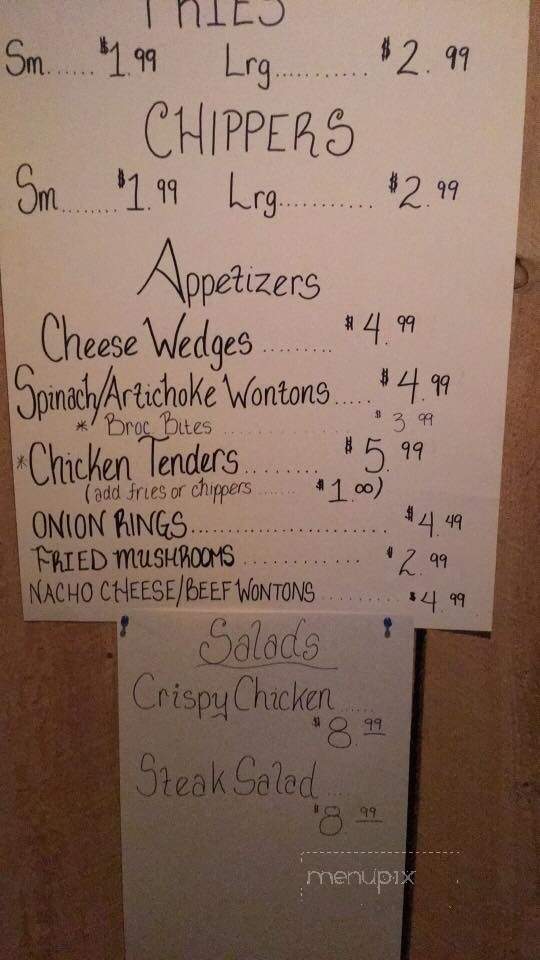 FRIES
Sm...... $1.99 Lrg........... $2.99
CHIPPERS
Sm........ $1.99 Lrg........... $2.99
Appetizers
Cheese Wedges ......... $4.99
Spinach/Artichoke Wontons..... $4.99
* Broc Bites ............... $3.99
*Chicken Tenders........ $5.99
(add fries or chippers ...... $1.00)
ONION RINGS........................ $4.49
FRIED MUSHROOMS ............ $2.99
NACHO CHEESE/BEEF WONTONS ......... $4.99
Salads
Crispy Chicken .....
$8.99
Steak Salad ....
$8.99
menupix